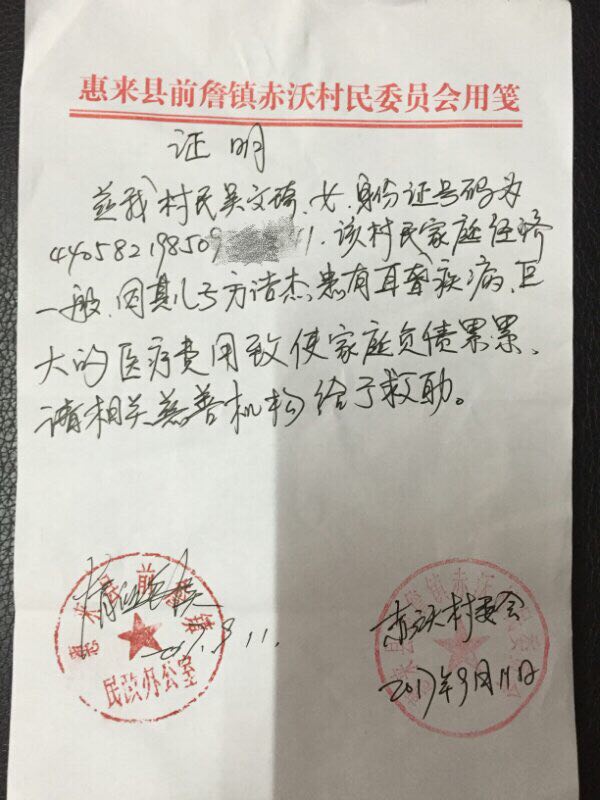 惠来县前詹镇赤沃村民委员会用笺
证明
兹我村民吴文琦、女、身份证号码为
440582198509 1.该村民家庭经济
一般、因其儿子方洁杰、患有耳聋疾病、巨
大的医疗费用致使家庭负债累累、
请相关慈善机构给予救助。
惠来县前詹镇
民政办公室
赤沃村委会
2017年9月11日